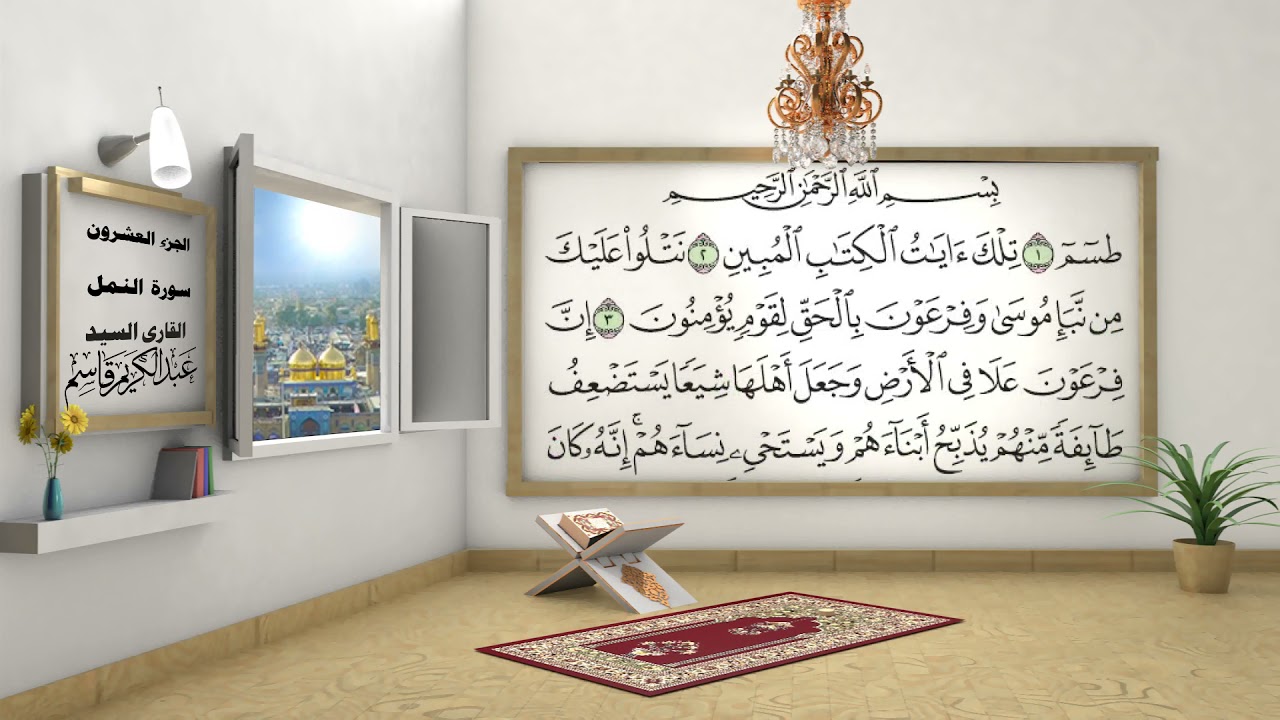 بِسْمِ ٱللَّهِ ٱلرَّحْمَٰنِ ٱلرَّحِيمِ
طسٓمٓ ١ تِلْكَ ءَايَٰتُ ٱلْكِتَٰبِ ٱلْمُبِينِ ٢ نَتْلُوا۟ عَلَيْكَ
مِن نَّبَإِ مُوسَىٰ وَفِرْعَوْنَ بِٱلْحَقِّ لِقَوْمٍ يُؤْمِنُونَ ٣ إِنَّ
فِرْعَوْنَ عَلَا فِى ٱلْأَرْضِ وَجَعَلَ أَهْلَهَا شِيَعًا يَسْتَضْعِفُ
طَآئِفَةً مِّنْهُمْ يُذَبِّحُ أَبْنَآءَهُمْ وَيَسْتَحْىِۦ نِسَآءَهُمْ ۚ إِنَّهُۥ كَانَ
الجزء العشرون
سورة النمل
القارئ السيد
عبدالكريم قاسم